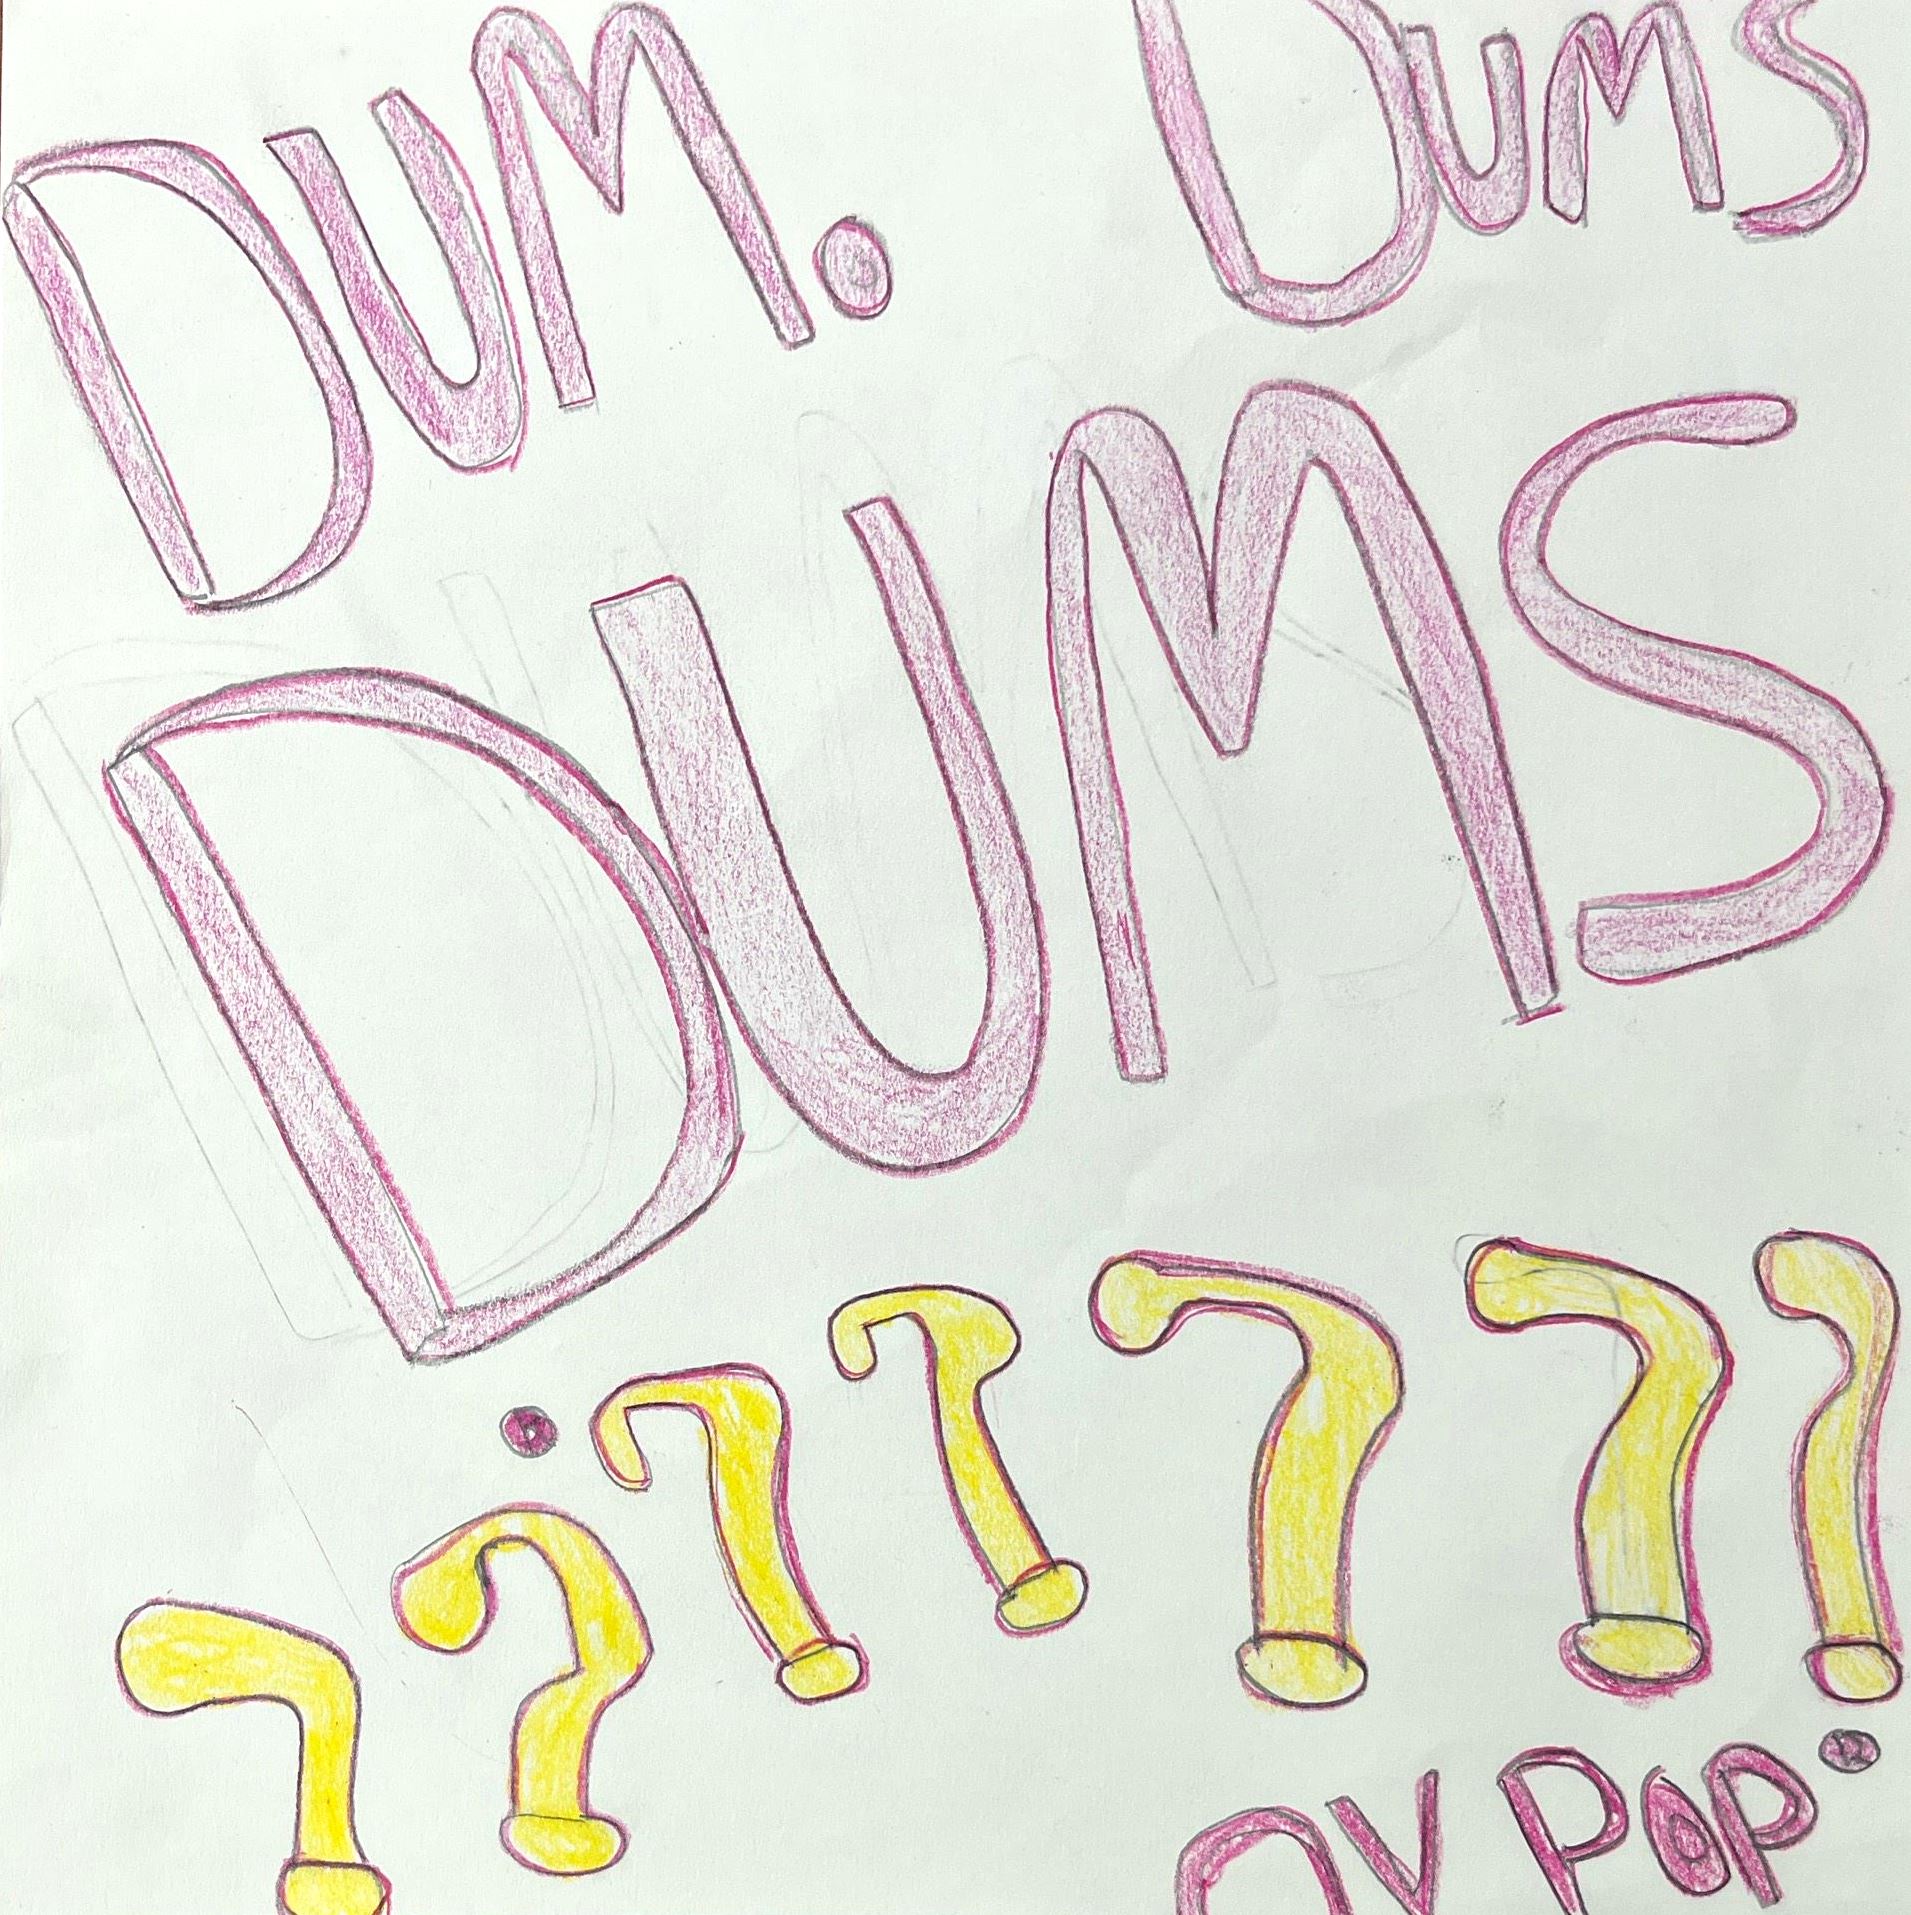 DUM. DUMS
DUMS
???????
POP